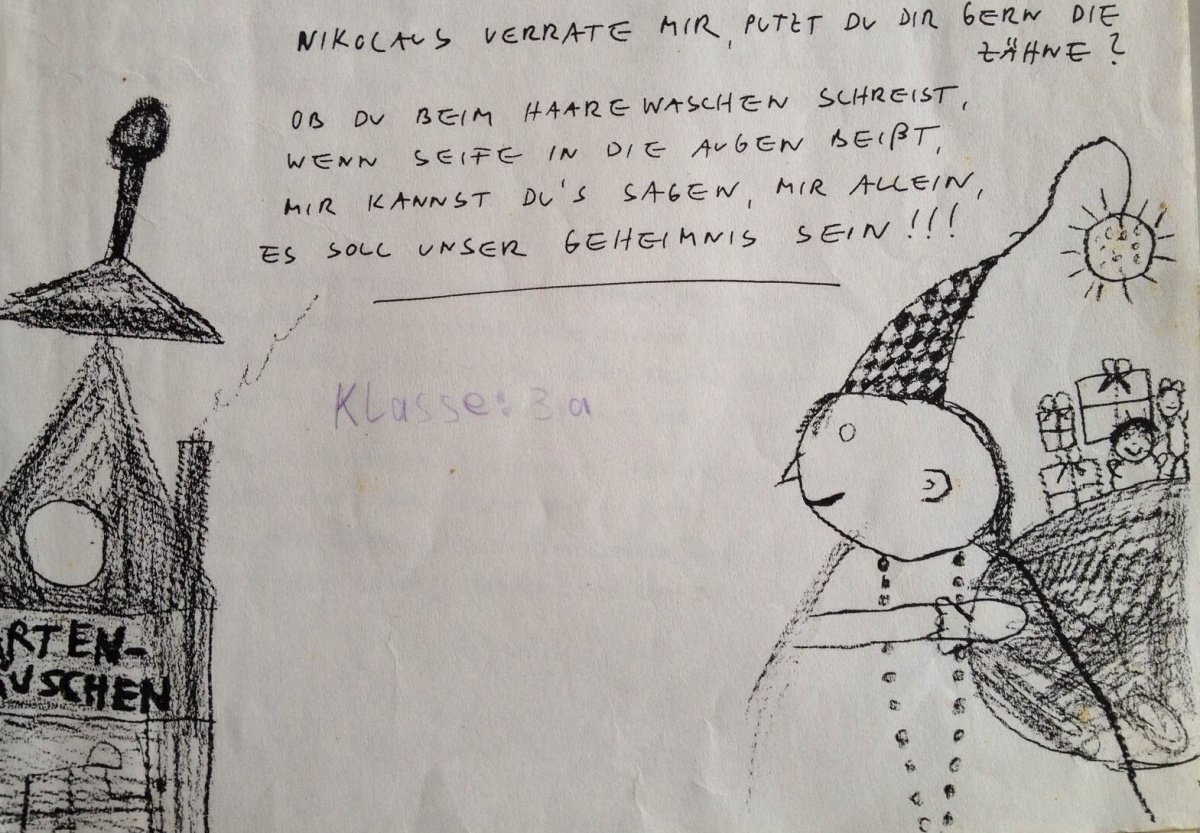 NIKOLAUS VERRATE MIR, PUTZT DU DIR GERN DIE
ZÄHNE?
OB DU BEIM HAAREWASCHEN SCHREIST,
WENN SEIFE IN DIE AUGEN BEIßT,
MIR KANNST DU'S SAGEN, MIR ALLEIN,
ES SOLL UNSER GEHEIMNIS SEIN!!!
Klasse: 3a
RTEN-
USCHEN